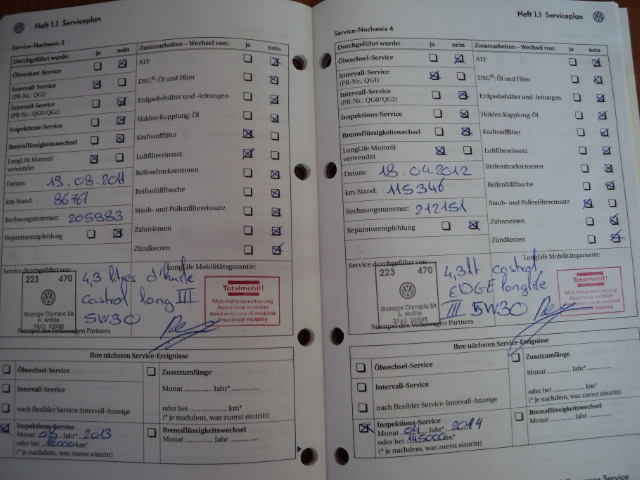 Heft 1.1 Serviceplan
Service-Nachweis 3
Durchgeführt wurde: ja nein
Ölwechsel-Service
Intervall-Service
(PR-Nr.: QG1)
Intervall-Service
(PR-Nr.: QG0/QG2)
Inspektions-Service
Bremsflüssigkeitswechsel
LongLife Motoröl
verwendet
Datum: 19.08.2011
km-Stand: 86761
Rechnungsnummer: 205983
Reparaturempfehlung
Zusatzarbeiten – Wechsel von: ja nein
ATF
DSG®-Öl und Filter
Erdgasbehälter und -leitungen
Haldex-Kupplung: Öl
Kraftstofffilter
Luftfiltereinsatz
Reifendrucksensoren
Reifenfüllflasche
Staub- und Pollenfiltereinsatz
Zahnriemen
Zündkerzen
Service durchgeführt von:
LongLife Mobilitätsgarantie:
223 470
Garage Olympia SA
A. Antille
3960 SIERRE
4,3 litres d'huile
Castrol long III
5W30
Totalmobil!
Mobilitätsversicherung
Assurance mobilité
Assicurazione di mobilità
Insurance mobility
Stempel des Volkswagen Partners
Ihre nächsten Service-Ereignisse
Ölwechsel-Service
Intervall-Service
nach flexibler Service-Intervall-Anzeige
Inspektions-Service
Monat Jahr* 2013
oder bei km*
(* je nachdem, was zuerst eintritt)
Zusatzumfänge
Monat ............ Jahr* ............
oder bei ............ km*
(* je nachdem, was zuerst eintritt)
Bremsflüssigkeitswechsel
Monat ............ Jahr ............
Heft 1.1 Serviceplan
Service-Nachweis 4
Durchgeführt wurde: ja nein
Ölwechsel-Service
Intervall-Service
(PR-Nr.: QG1)
Intervall-Service
(PR-Nr.: QG0/QG2)
Inspektions-Service
Bremsflüssigkeitswechsel
LongLife Motoröl
verwendet
Datum: 18.04.2012
km-Stand: 115346
Rechnungsnummer: 212151
Reparaturempfehlung
Zusatzarbeiten – Wechsel von: ja nein
ATF
DSG®-Öl und Filter
Erdgasbehälter und -leitungen
Haldex-Kupplung: Öl
Kraftstofffilter
Luftfiltereinsatz
Reifendrucksensoren
Reifenfüllflasche
Staub- und Pollenfiltereinsatz
Zahnriemen
Zündkerzen
Service durchgeführt von:
LongLife Mobilitätsgarantie:
223 470
Garage Olympia SA
A. Antille
3960 SIERRE
4,3 lt castrol
EDGE longlife
III 5W30
Totalmobil!
Mobilitätsversicherung
Assurance mobilité
Assicurazione di mobilità
Insurance mobility
Stempel des Volkswagen Partners
Ihre nächsten Service-Ereignisse
Ölwechsel-Service
Intervall-Service
nach flexibler Service-Intervall-Anzeige
Inspektions-Service
Monat 04 Jahr* 2014
oder bei 145000 km*
(* je nachdem, was zuerst eintritt)
Zusatzumfänge
Monat ............ Jahr* ............
oder bei ............ km*
(* je nachdem, was zuerst eintritt)
Bremsflüssigkeitswechsel
Monat ............ Jahr ............